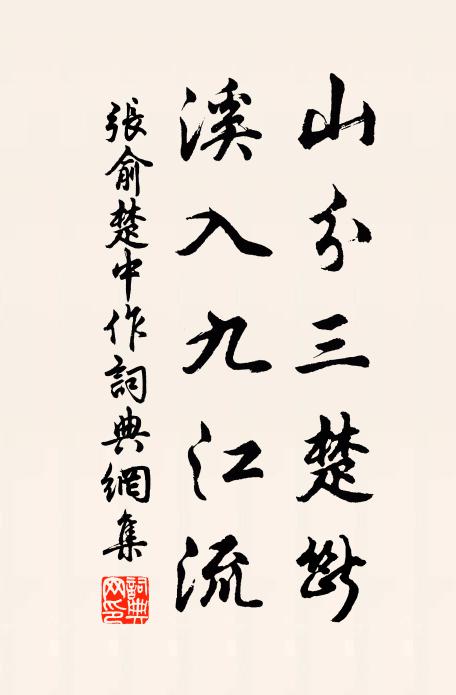 山分三楚斷
溪入九江流
張俞楚中作詞典網集
詞典网印